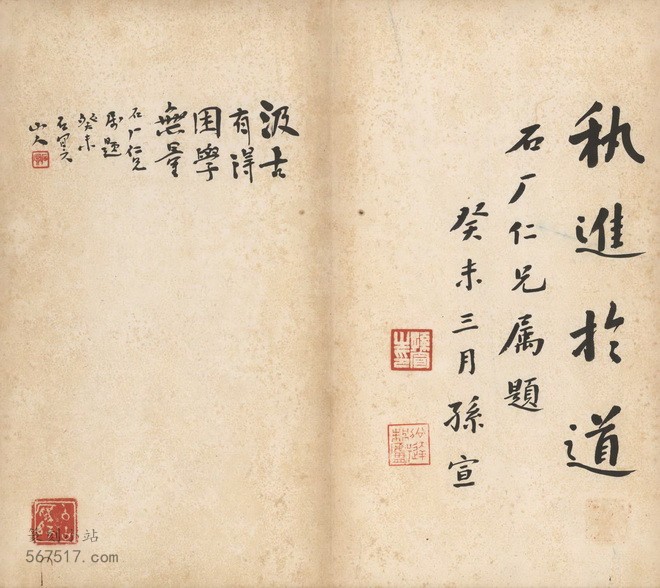 秇進於道
石厂仁兄属題
癸未三月孫宣
汲古
有得
困學
無量
石厂仁兄
属題
癸未
山人
567517.com